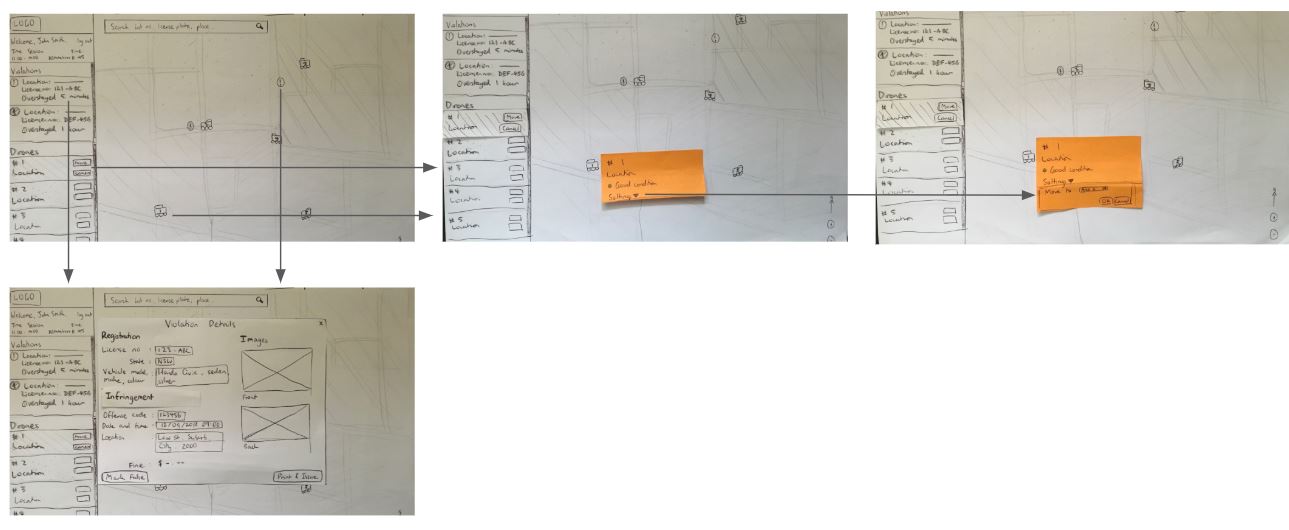 LOGO
Search lot no, license plate, place...
Welcome, John Smith. log out
Violations
! Location:
License no: 123-ABC
Overstayed 5 minutes
Location:
License no: DEF-456
Overstayed 1 hour
Drones
# 1 Move
Location Cancel
# 2
Location
# 3
Location
# 4
Violations
! Location:
License no: 123-ABC
Overstayed 5 minutes
Location:
License no: DEF-456
Overstayed 1 hour
Drones
# 1 Move
Location Cancel
# 2
Location
# 3
Location
# 4
Location
# 5
Location
# 1
Location
Good condition
Setting
! Location:
License no: 123-ABC
Overstayed 5 minutes
Location:
License no: DEF-456
Overstayed 1 hour
Drones
# 1 Move
Location Cancel
# 2
Location
# 3
Location
# 4
Location
# 5
Location
# 1
Location
Good condition
Setting
Move to
OK Cancel
LOGO
Search lot no, license plate, place...
Welcome, John Smith. log out
Violations
! Location:
License no: 123-ABC
Overstayed 5 minutes
Location:
License no: DEF-456
Overstayed 1 hour
Drones
# 1 Move
Location Cancel
# 2
Location
# 3
Location
# 4
Violation Details x
Registration
License no : 123-ABC
State : NSW
Vehicle model, make, colour : Honda Civic, sedan, silver
Infringement
Offence code : 123456
Date and time : 12/05/2018 09:00
Location Law St, Suburb,
City, 2000
Fine : $ -.--
Mark False Print & Issue
Images
Front
Back